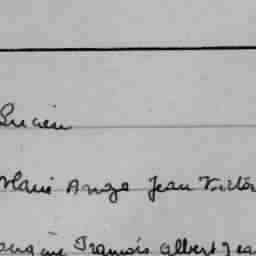 Lucien
Marie Ange Jean Victor
Eugène François Albert Jea